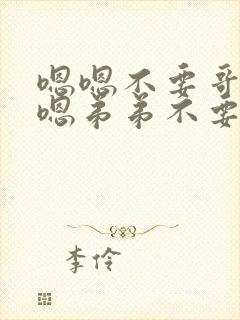 嗯嗯不要哥
嗯弟弟不要
李伶